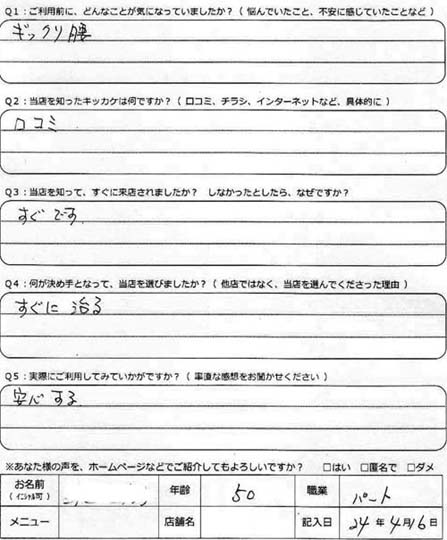 Q1:ご利用前に、どんなことが気になっていましたか?(悩んでいたこと、不安に感じていたことなど)
ギックリ腰
Q2:当店を知ったキッカケは何ですか?(口コミ、チラシ、インターネットなど、具体的に)
口コミ
Q3:当店を知って、すぐに来店されましたか? しなかったとしたら、なぜですか?
すぐです
Q4:何が決め手となって、当店を選びましたか?(他店ではなく、当店を選んでくださった理由)
すぐに治る
Q5:実際にご利用してみていかがですか?(率直な感想をお聞かせください)
安心する
※あなた様の声を、ホームページなどでご紹介してもよろしいですか? □はい □匿名で □ダメ
お名前(イニシャル可) 年齢 50 職業 パート
メニュー 店舗名 記入日 24年4月16日